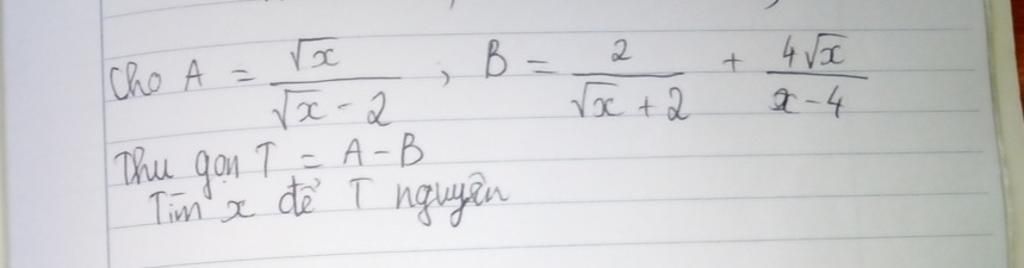 Cho A = √x / (√x - 2) , B = 2 / (√x + 2) + 4√x / (x - 4)
Thu gọn T = A - B
Tìm x để T nguyên